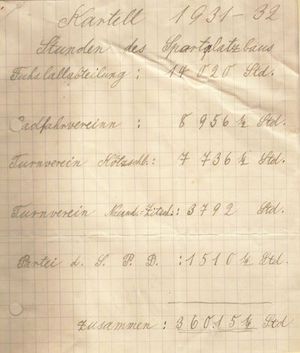 Kartell 1931-32
Stunden des Sportplatzbaus
Fuhsballabteilung : 14 020 Std.
Radfahrvereinn : 8 956 ½ Std.
Turnverein : 7 736 ½ Std.
Turnverein : 3792 Std.
Partei d. S. P. D. : 1510 ½ Std.
zusammen : 36015 ½ Std